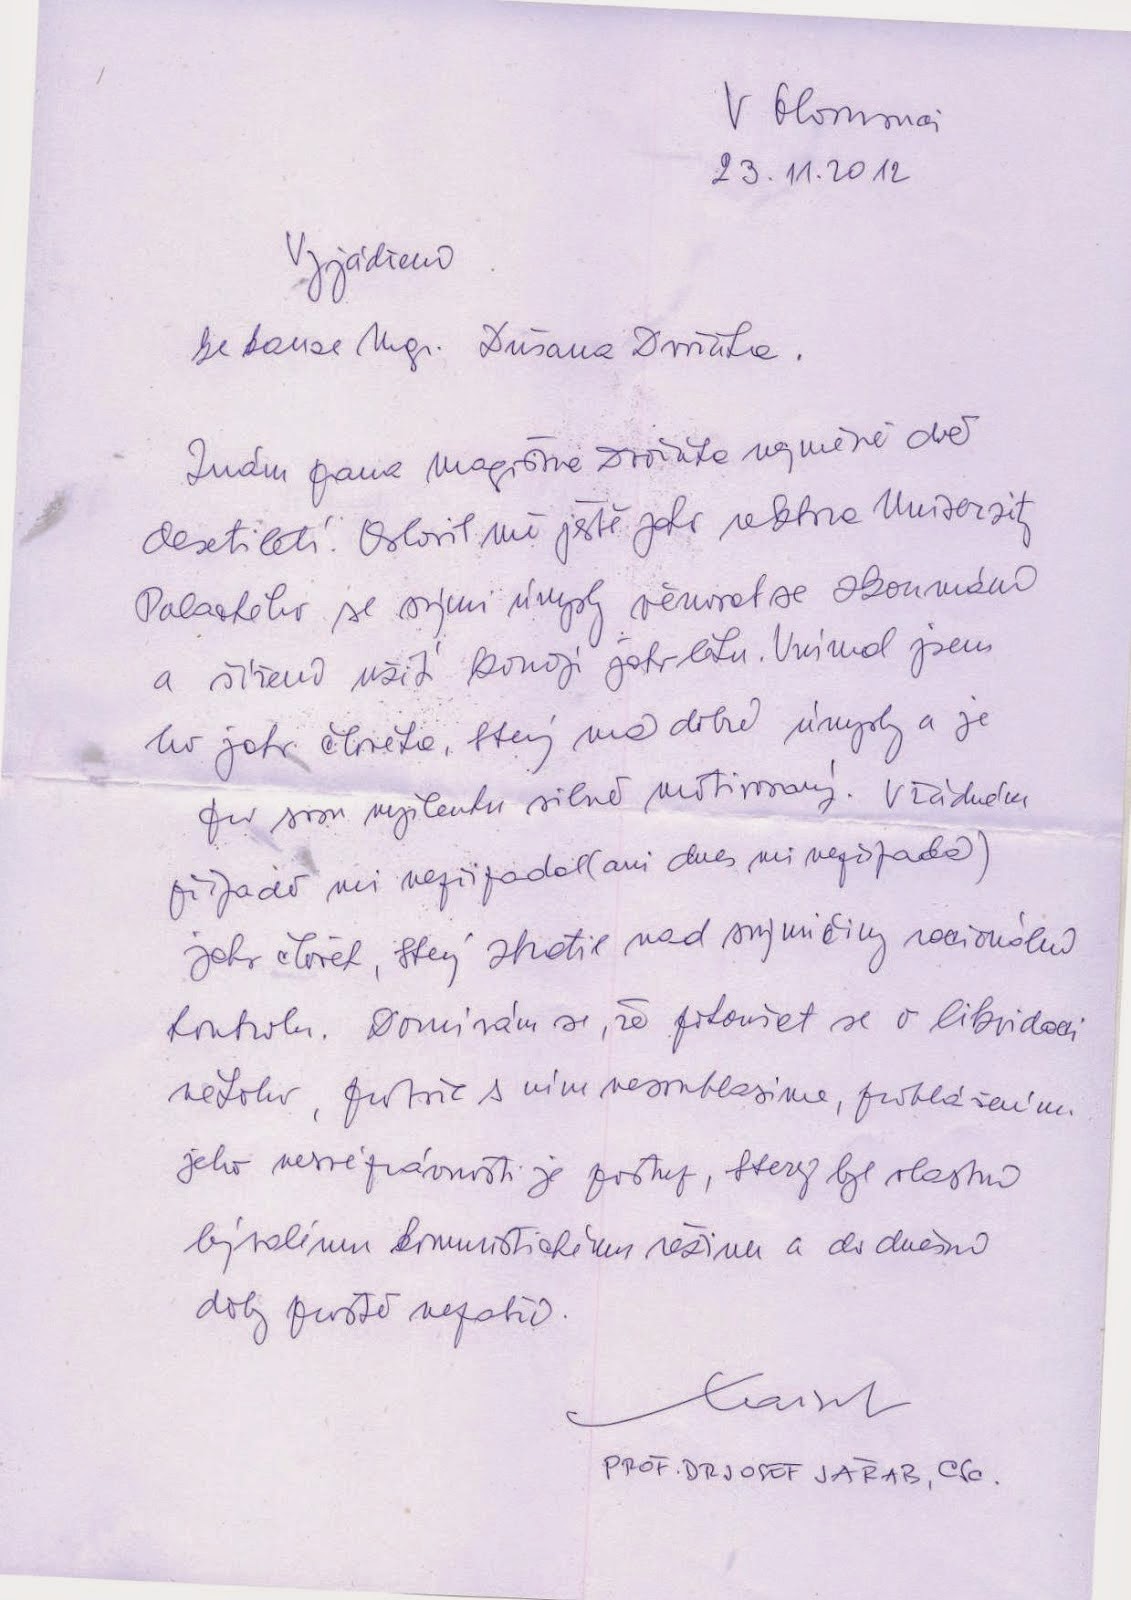 V Olomouci
23.11.2012
Vyjádření
ke kauze Mgr. Dušana Dvořáka.
Znám pana magistra Dvořáka nejméně dvě
desetiletí. Oslovil mě ještě jako rektora Univerzity
Palackého se svými úmysly věnovat se zkoumání
a šíření užití konopí jako léku. Vnímal jsem
ho jako člověka, který má dobré úmysly a je
pro svou myšlenku silně motivovaný. V žádném
případě mi nepřipadal (ani dnes mi nepřipadá)
jako člověk, který ztratil nad svými činy racionální
kontrolu. Domnívám se, že pokoušet se o likvidaci
někoho, protože s ním nesouhlasíme, prohlášením
jeho nesvéprávnosti je postup, který byl vlastní
bývalému komunistickému režimu a do dnešní
doby prostě nepatří.
PROF. DR JOSEF JAŘAB, CSc.